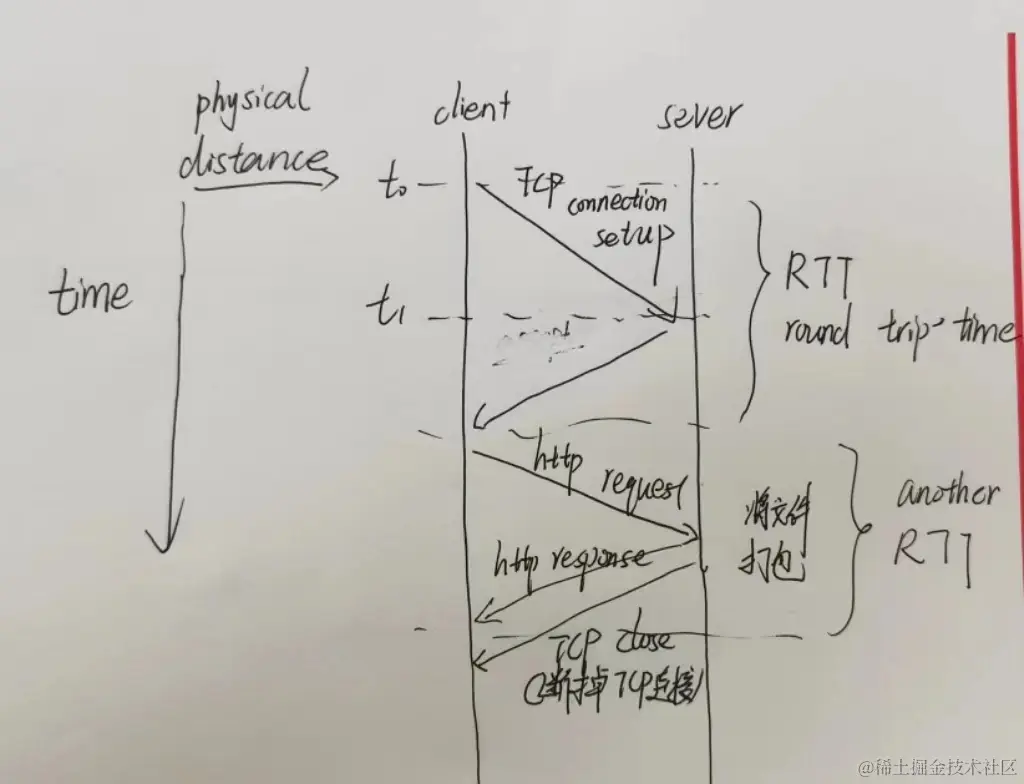 physical
distance
time
client
sever
t₀
TCP
connection
setup
t₁
RTT
round trip time
http
request
将文件
打包
another
RTT
http response
TCP close
(断掉TCP连接)
@稀土掘金技术社区